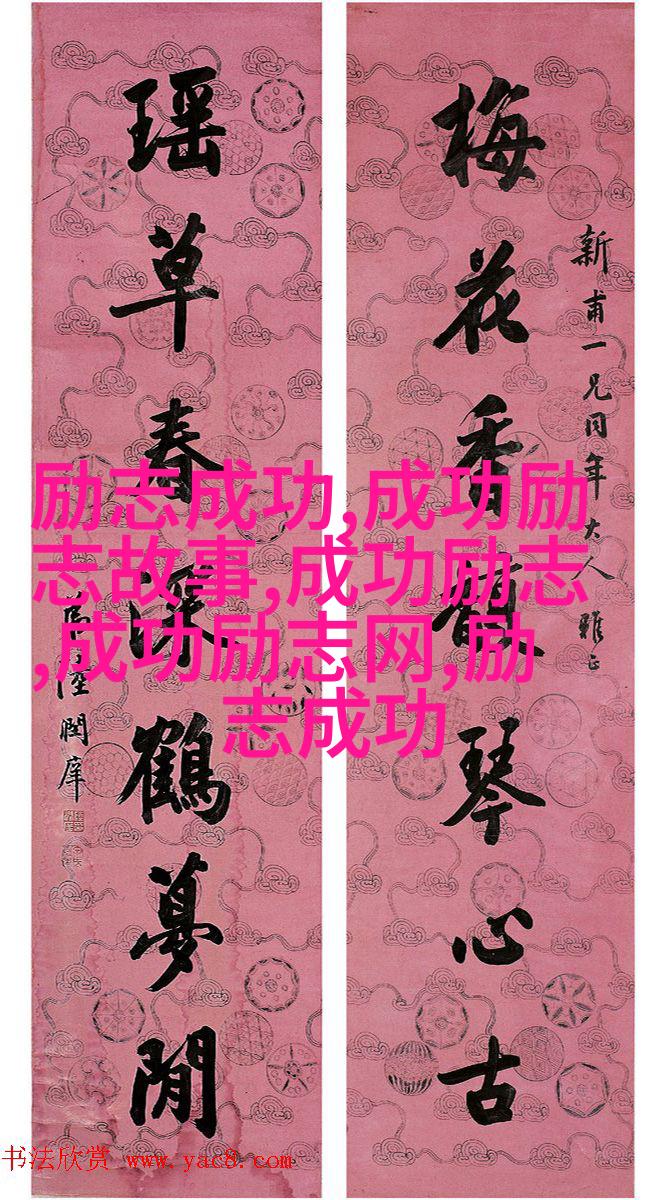 梅花香馥琴心古
新甫一兄同年大人雅正
瑶草春深鶴夢閒
陸潤庠
励志成功,成功励
志故事,成功励志
,成功励志网,励
志成功
书法欣赏 www.yac8.com